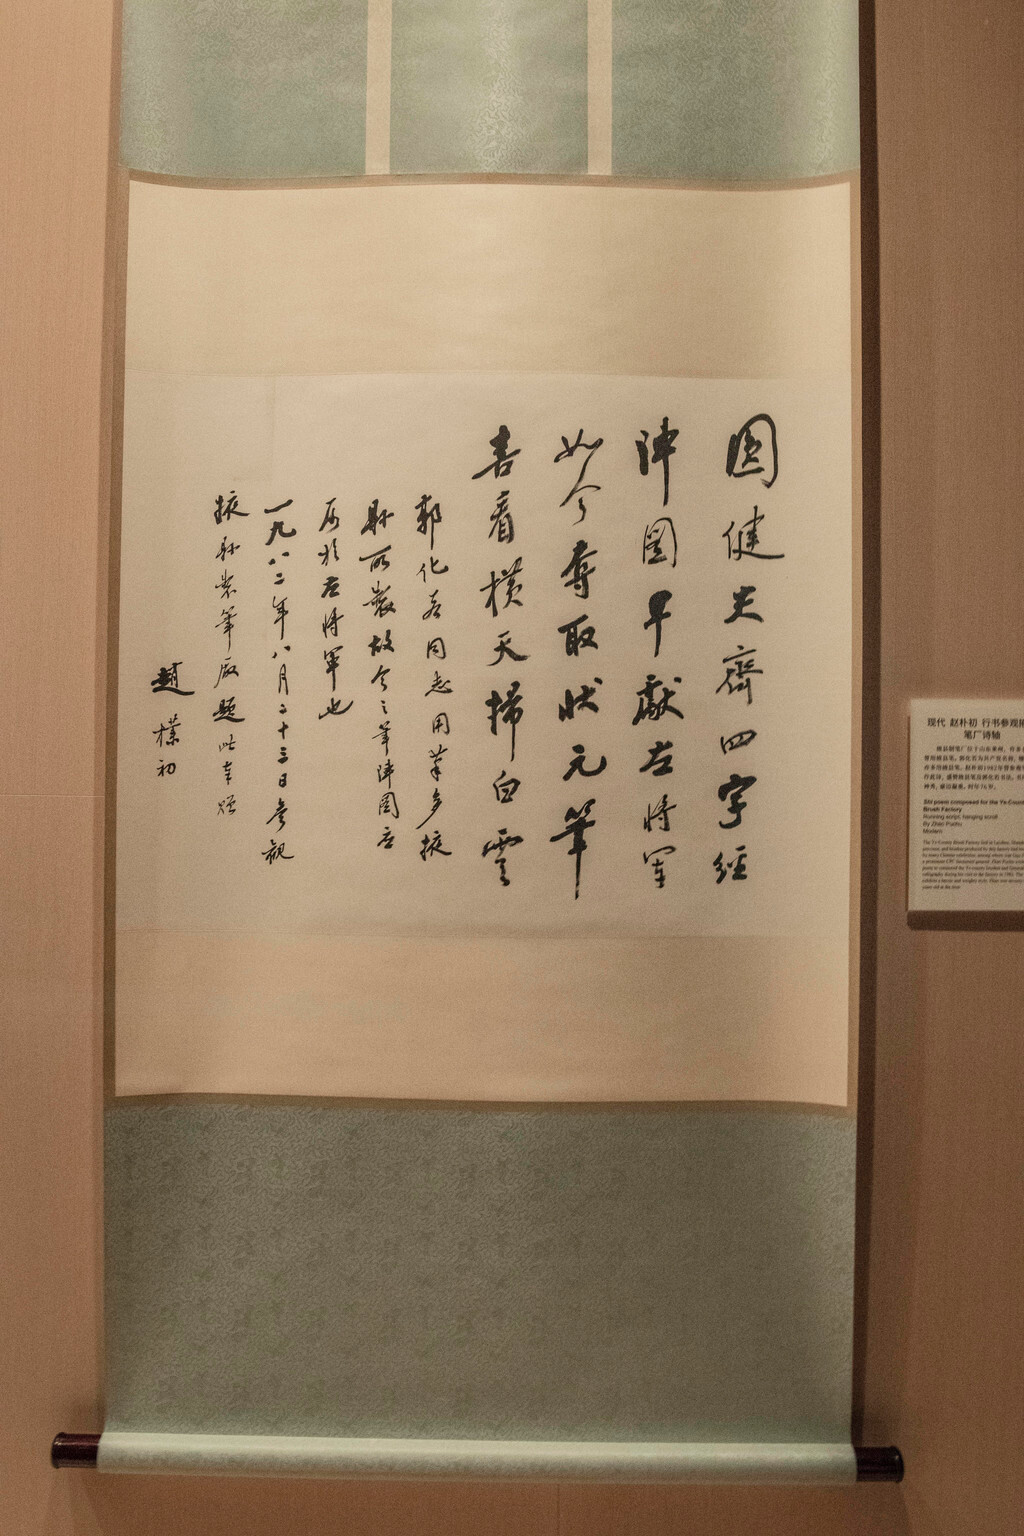 圆健尖齊四字經
陣圖早獻左將軍
如今奪取狀元筆
喜看橫天掃白雲
郭化若同志用筆多掖
縣所製故今之筆陣圖应
屬於左將軍也
一九八二年八月二十三日參觀
掖縣製筆廠題此奉贈
趙樸初
现代 赵朴初 行书参观掖
笔厂诗轴
Shi poem composed for the Ye-Coun
Brush Factory
Running script, hanging scroll
By Zhao Puchu
Modern